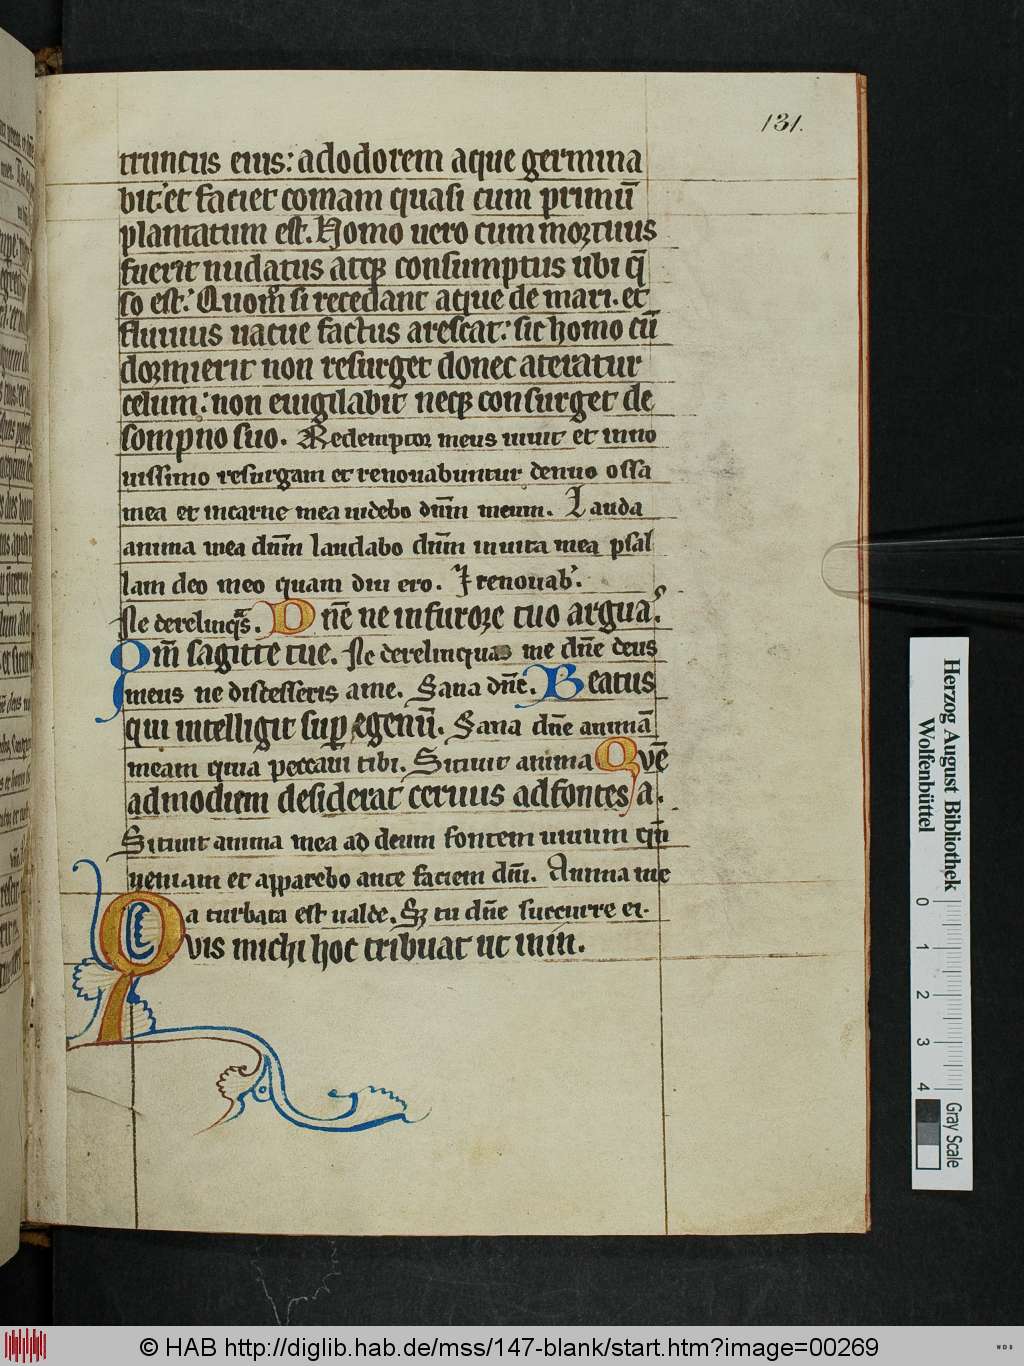 131.
truncus eius: ad odorem aque germina
bit: et faciet comam quasi cum primū
plantatum est. Homo uero cum mortuus
fuerit nudatus atqꝫ consumptus ubi q̄
so est: Quom̊ si recedant aque de mari. et
fluuius uacue factus arescat: sic homo cū
dormierit non resurget donec ateratur
celum: non euigilabit neqꝫ consurget de
sompno suo. Redemptor meus uiuit et inno
uissimo resurgam et renouabuntur denuo ossa
mea et in carne mea uidebo dn̄m meum. Lauda
anima mea dn̄m laudabo dn̄m in uita mea psal
lam deo meo quam diu ero. renouab'.
Ne derelinq̄s. Dn̄e ne in furore tuo arguas.
Om̄ sagitte tue. Ne derelinquas me dn̄e deus
meus ne discesseris a me. Sana dn̄e. Beatus
qui intelligit suꝑ egenū. Sana dn̄e animā
meam quia peccaui tibi. Sitiuit anima Qvē
admodum desiderat ceruus ad fontes a.
Sitiuit anima mea ad deum fontem uiuum qn̄
ueniam et apparebo ante faciem dn̄i. Anima me
a turbata est ualde. Sꝫ tu dn̄e succurre ei.
Qvis michi hoc tribuat ut in in.
Herzog August Bibliothek
Wolfenbüttel
0 1 2 3 4
Gray Scale
© HAB http://diglib.hab.de/mss/147-blank/start.htm?image=00269